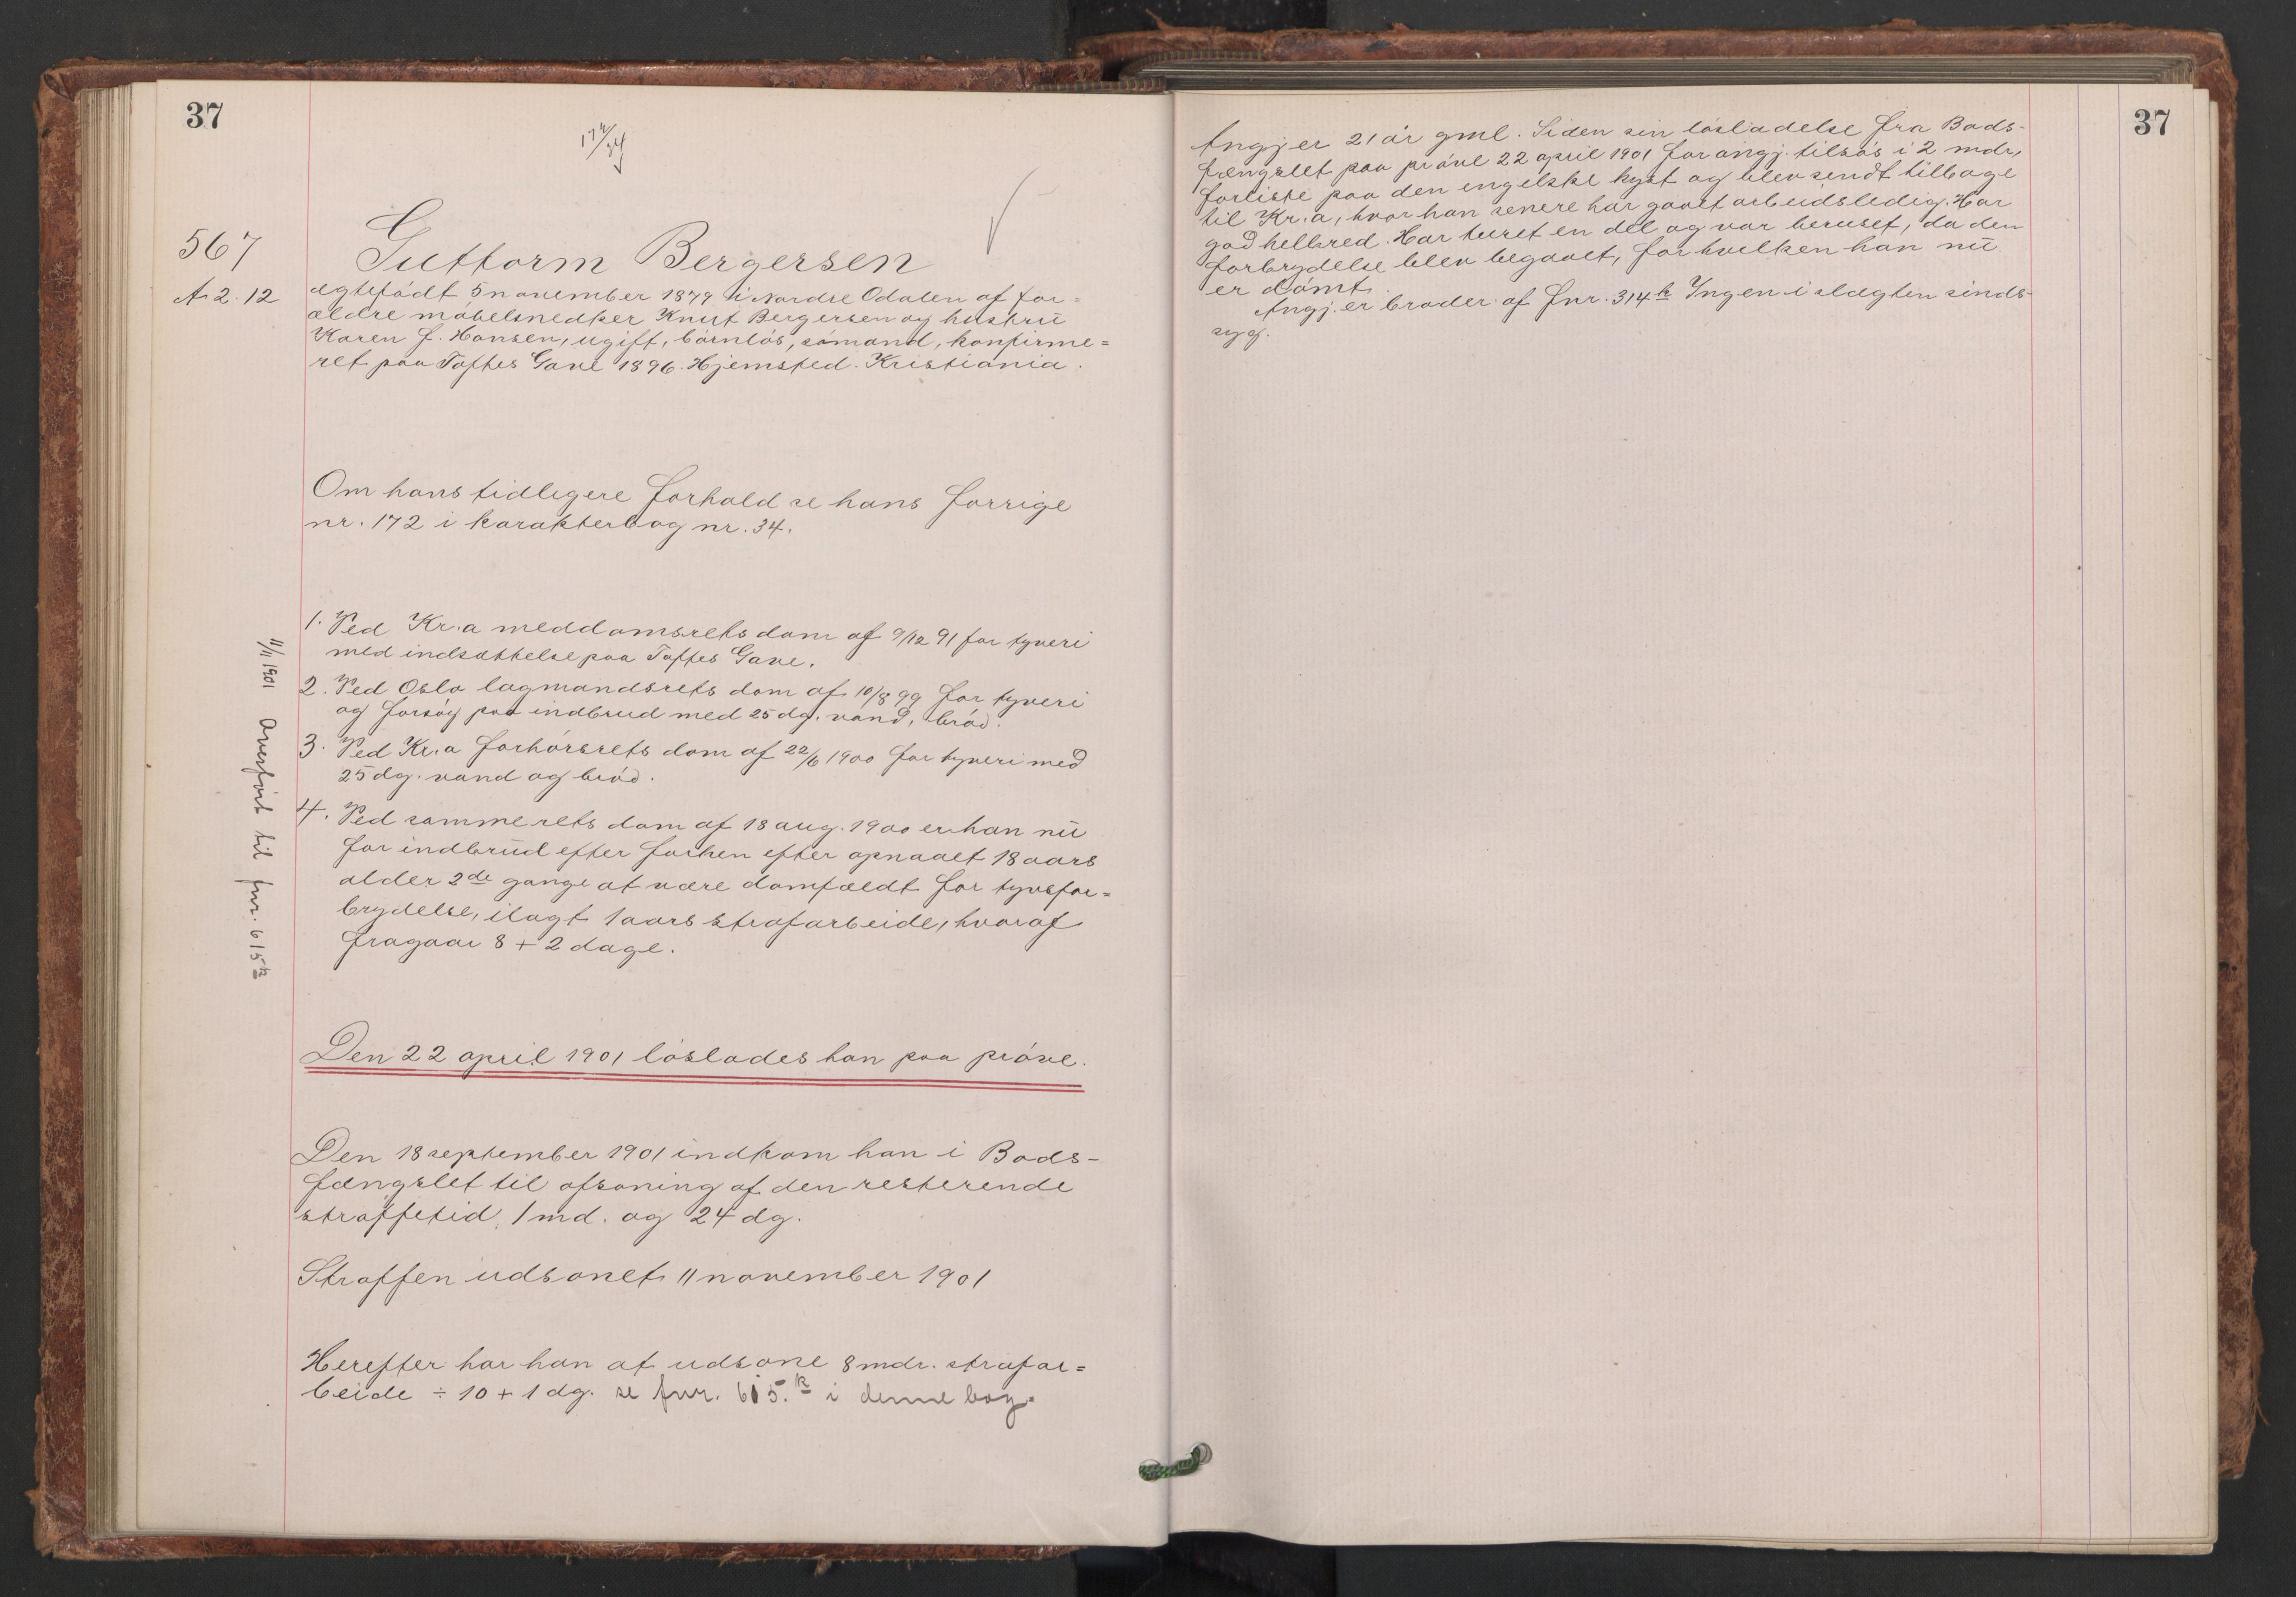 37
567
A. 2. 12
Guttorm Bergersen
ægtefødt 5 november 1879 i Nordre Odalen af for=
ældre møbelsnedker Knut Bergersen og hustru
Karen f. Hansen, ugift, børnløs, sømand, konfirme=
ret paa Toftes Gave 1896. Hjemsted. Kristiania.
Om hans tidligere forhold se hans forrige
nr. 172 i karakterbog nr. 34.
1. Ved Kr.a meddomsrets dom af 9/12 91 for tyveri
med indsættelse paa Toftes Gave.
2. Ved Oslo lagmandsrets dom af 10/8 99 for tyveri
og forsøg paa indbrud med 25 dg. vand, brød.
3. Ved Kr.a forhørsrets dom af 22/6 1900 for tyveri med
25 dg. vand og brød.
4. Ved samme rets dom af 18 aug. 1900 er han nu
for indbrud efter forhen efter opnaaet 18 aars
alder 2de gange at være domfældt for tyvsfor=
brydelse, ilagt 1 aars strafarbeide, hvoraf
fragaar 8 + 2 dage.
11/11 1901 Overført til fnr. 615 k
Den 22 april 1901 løslades han paa prøve.
Den 18 september 1901 indkom han i Bods-
fængslet til afsoning af den resterende
straffetid, 1 md. og 24 dg.
Straffen udsonet 11 november 1901
Herefter har han at udsone 8 mdr. strafar=
beide ÷ 10 + 1 dg. se fnr. 615. k i denne bog.
37
Angj. er 21 år gml. Siden sin løsladelse fra Bods-
fængslet paa prøve 22 april 1901 for angj. tilsøs i 2 mdr,
forliste paa den engelske kyst og blev sendt tilbage
til Kr.a, hvor han senere har gaaet arbeidsledig. Har
god helbred. Har turet en del og var beruset, da den
forbrydelse blev begaaet, for hvilken han nu
er dømt.
Angj. er broder af Fnr. 314 k Ingen i slægten sinds-
syg.